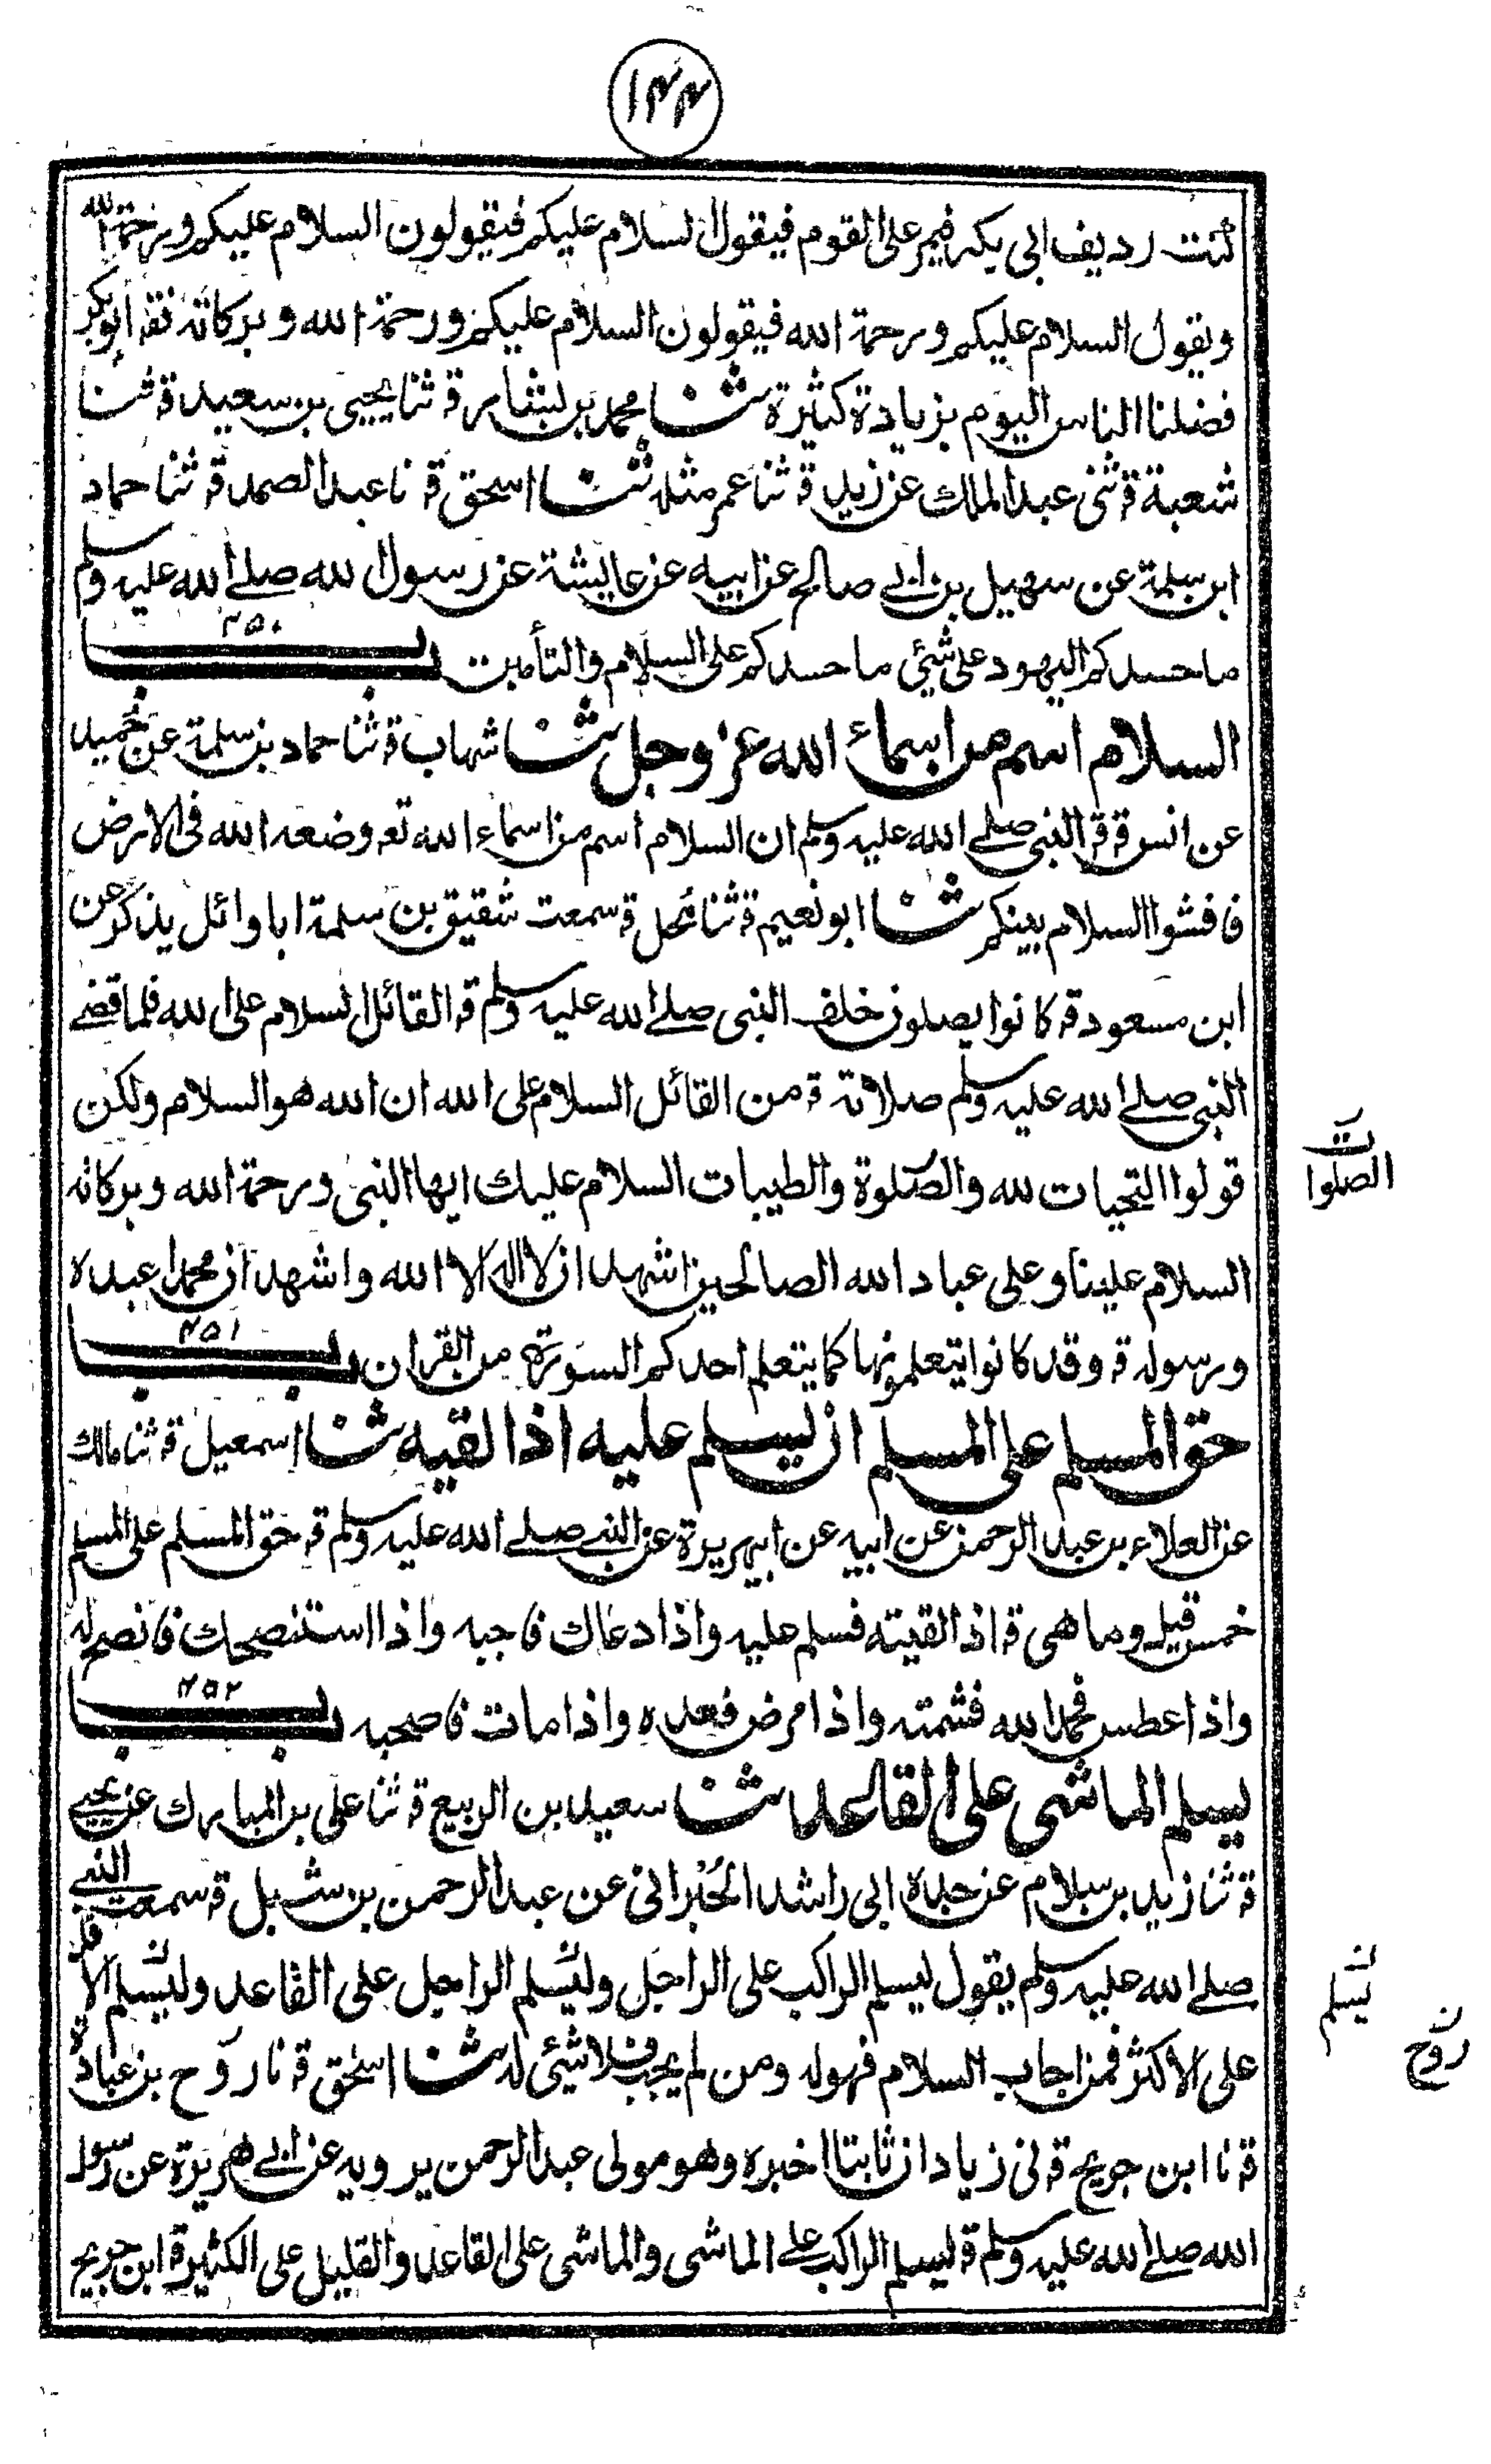 ۱۴۴
كنت رديف ابى بكر فيمر على القوم فيقول السلام عليكم فيقولون السلام عليكم ورحمة الله
ويقول السلام عليكم ورحمة الله فيقولون السلام عليكم ورحمة الله وبركاته فقـ ابو بكر
فضلنا الناس اليوم بزيادة كثيرة ثنا محمد بن بشار قـ ثنا يحيى بن سعيد قـ ثنا
شعبة قـ ثنى عبد الملك عن زيد قـ ثنا عمر مثله ثنا اسحق قـ نا عبد الصمد قـ ثنا حماد
ابن سلمة عن سهيل بن ابى صالح عن ابيه عن عايشة عن رسول الله صلے الله عليه وسلم
ما حسدكم اليهود على شئى ما حسدكم على السلام والتأمين باب ۴۵۰
السلام اسم من اسماء الله عز وجل ثنا شهاب قـ ثنا حماد بن سلمة عن حميد
عن انس قـ قـ النبى صلے الله عليه وسلم ان السلام اسم من اسماء الله تعـ وضعه الله فى الارض
فافشوا السلام بينكم ثنا ابو نعيم قـ ثنا مُحل قـ سمعت شقيق بن سلمة ابا وائل يذكر عن
ابن مسعود قـ كانوا يصلون خلف النبى صلے الله عليه وسلم قـ القائل السلام على الله فلما قضے
النبى صلے الله عليه وسلم صلاته قـ من القائل السلام على الله ان الله هو السلام ولكن
قولوا التحيات لله والصلوة والطيبات السلام عليك ايها النبى ورحمة الله وبركاته
الصلوات
السلام علينا وعلى عباد الله الصالحين اشهد ان لا اله الا الله واشهد ان محمدا عبده
ورسوله قـ وقد كانوا يتعلمونها كما يتعلم احدكم السورة من القران باب ۴۵۱
حق المسلم على المسلم ان يسلم عليه اذا لقيه ثنا اسمعيل قـ ثنا مالك
عن العلاء بن عبد الرحمن عن ابيه عن ابيهريرة عن النبى صلے الله عليه وسلم قـ حق المسلم على المسلم
خمس قيل وما هى قـ اذا لقيته فسلم عليه واذا دعاك فاجبه واذا استنصحك فانصح له
واذا عطس فحمد الله فشمته واذا مرض فعده واذا مات فاصحبه باب ۴۵۲
يسلم الماشى على القاعد ثنا سعيد بن الربيع قـ ثنا على بن المبارك عن يحيى
قـ ثنا زيد بن سلام عن جده ابى راشد الحُبْرانى عن عبد الرحمن بن شبل قـ سمعت النبى
صلے الله عليه وسلم يقول ليسلم الراكب على الراجل وليسلم الراجل على القاعد وليسلم الاقل
يسلم
على الاكثر فمن اجاب السلام فهو له ومن لم يجب فلا شئى له ثنا اسحق قـ نا رَوح بن عبادة
روح
قـ نا ابن جريج قـ نى زياد ان ثابتا اخبره وهو مولى عبد الرحمن يرويه عن ابى هريرة عن رسول
الله صلے الله عليه وسلم قـ ليسلم الراكب على الماشى والماشى على القاعد والقليل على الكثير قـ ابن جريج